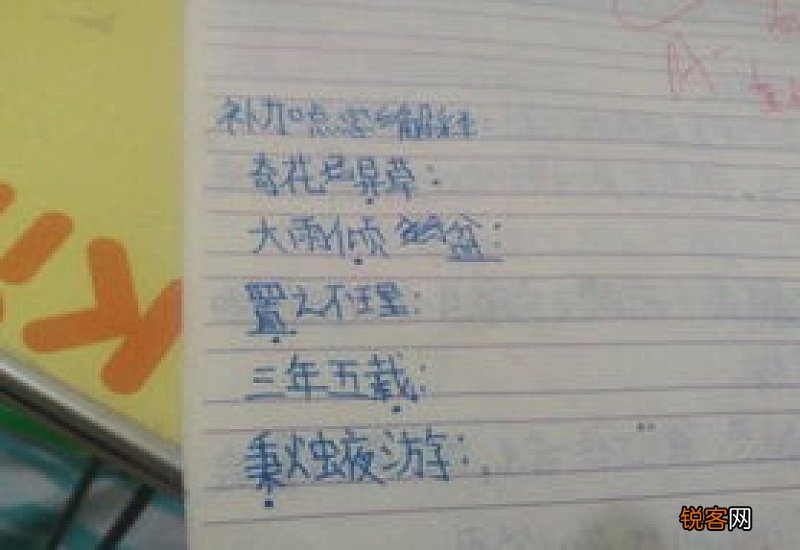 补加点字解释
奇花异草：
大雨倾盆：
置之不理：
三年五载：
秉烛夜游：
锐客网